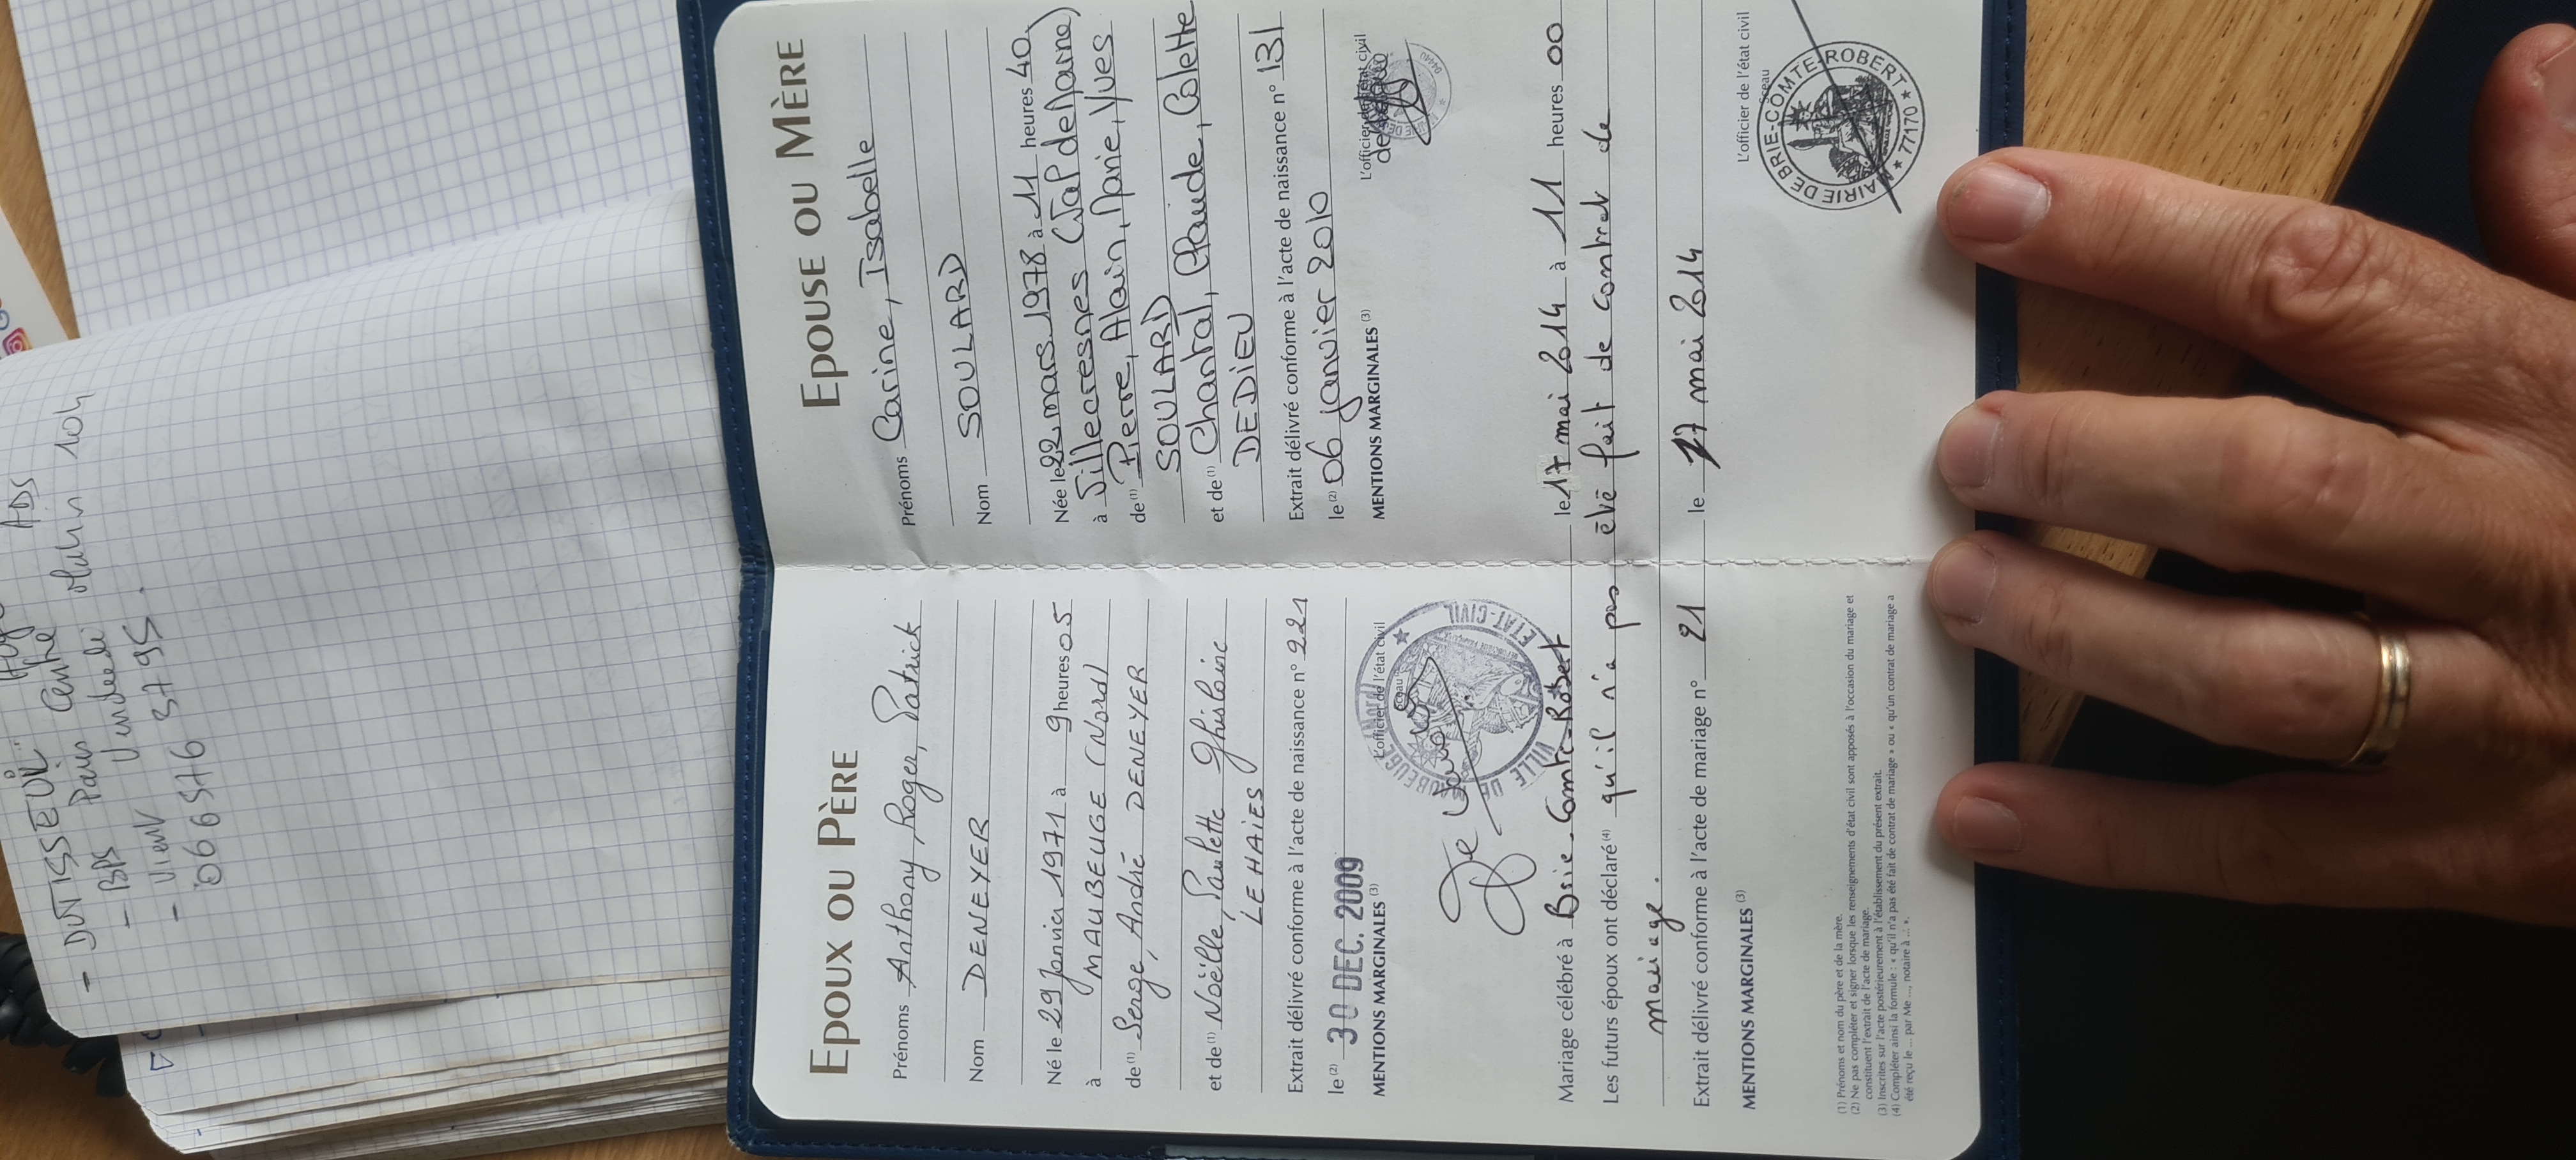 ADS
- DUTISSEUIL Centre
- BPS Paris Vendredi matin 10h
- Vient
06 65 76 37 95.
EPOUX OU PÈRE
Prénoms Anthony, Roger, Patrick
Nom DENEYER
Né le 29 Janvier 1971 à 9 heures 05
à MAUBEUGE (Nord)
de (1) Serge, André DENEYER
et de (1) Noëlle, Paulette Ghislaine
LEHAIES
Extrait délivré conforme à l'acte de naissance n° 221
le (2) 30 DEC. 2009
L'officier de l'état civil
MENTIONS MARGINALES (3)
VILLE DE MAUBEUGE (Nord) ★ ETAT-CIVIL
EPOUSE OU MÈRE
Prénoms Carine, Isabelle
Nom SOULARD
Née le 22 mars 1978 à 11 heures 40
à Villecresnes (Val de Marne)
de (1) Pierre, Alain, Marie, Yves
SOULARD
et de (1) Chantal, Claude, Colette
DEDIEU
Extrait délivré conforme à l'acte de naissance n° 131
le (2) 06 janvier 2010
L'officier de l'état civil
MENTIONS MARGINALES (3)
Mariage célébré à Brie-Comte-Robert le 17 mai 2014 à 11 heures 00
Les futurs époux ont déclaré (4) qu'il n'a pas été fait de contrat de
mariage.
Extrait délivré conforme à l'acte de mariage n° 21 le 17 mai 2014
MENTIONS MARGINALES (3)
L'officier de l'état civil
Sceau
MAIRIE DE BRIE-COMTE-ROBERT ★ 77170 ★
(1) Prénoms et nom du père et de la mère.
(2) Ne pas compléter et signer lorsque les renseignements d'état civil sont apposés à l'occasion du mariage et
constituent l'extrait de l'acte de mariage.
(3) Inscrites sur l'acte postérieurement à l'établissement du présent extrait.
(4) Compléter ainsi la formule : « qu'il n'a pas été fait de contrat de mariage » ou « qu'un contrat de mariage a
été reçu le ... par Me ..., notaire à ... ».